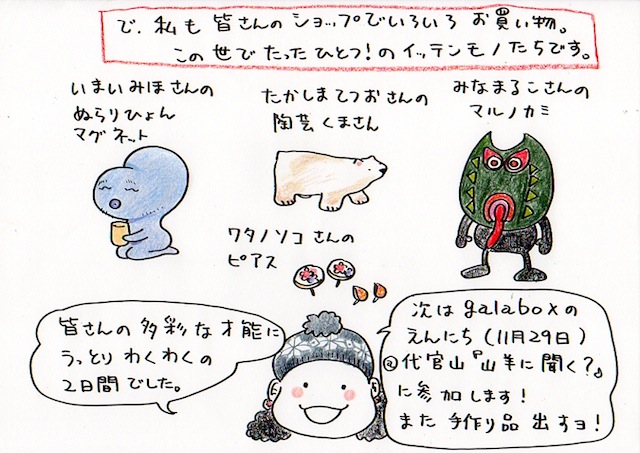 で、私も皆さんのショップでいろいろお買い物。
この世でたったひとつ!のイッテンモノたちです。
いまいみほさんの
ぬらりひょん
マグネット
たかしまてつおさんの
陶芸くまさん
みなまるこさんの
マルノカミ
ワタノソコさんの
ピアス
皆さんの多彩な才能に
うっとりわくわくの
2日間でした。
次はgalaboxの
えんにち(11月29日)
@代官山『山羊に聞く?』
に参加します!
また手作り品出すヨ!